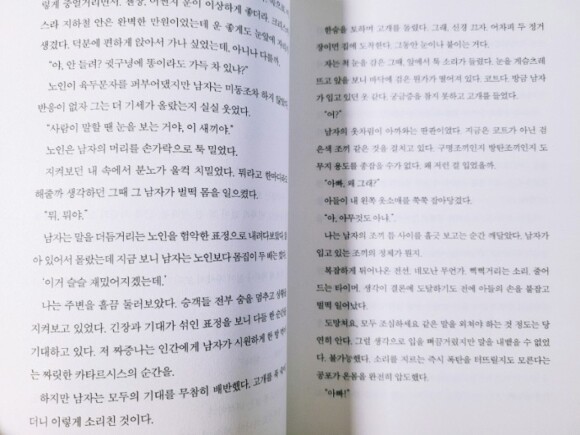 스라 지하철 안은 완벽한 만원이었는데 운 좋게도 눈앞에
생겼다. 덕분에 편하게 앉아서 가나 싶었는데. 아니나 다를까.
"야, 안 들려? 귓구녕에 똥이라도 가득 차 있냐?"
노인이 육두문자를 퍼부어댔지만 남자는 미동조차 하지
반응이 없자 그는 더 기세가 올랐는지 실실 웃었다.
"사람이 말할 땐 눈을 보는 거야, 이 새끼야."
노인은 남자의 머리를 손가락으로 툭 밀었다.
지켜보던 내 속에서 분노가 울컥 치밀었다. 뭐라고 한마디라도
해줄까 생각하던 그때 그 남자가 벌떡 몸을 일으켰다.
"뭐, 뭐야."
남자는 말을 더듬거리는 노인을 험악한 표정으로 내려다보았다.
아 있어서 몰랐는데 지금 보니 남자는 노인보다 몸집이 두 배는
'이거 슬슬 재밌어지겠는데.'
나는 주변을 흘끔 둘러보았다. 승객들 전부 숨을 멈추고
지켜보고 있었다. 긴장과 기대가 섞인 표정을 보니 다들 한
기대하고 있다. 저 짜증나는 인간에게 남자가 시원하게 한
는 짜릿한 카타르시스의 순간을.
하지만 남자는 모두의 기대를 무참히 배반했다. 고개를 푹
더니 이렇게 소리친 것이다.
한숨을 토하며 고개를 돌렸다. 그래, 신경 끄자. 어차피 두 정거
장이면 집에 도착한다. 그동안 눈이나 붙이고 있자.
자는 척 눈을 감은 그때, 앞에서 툭 소리가 들렸다. 눈을 게슴츠레
뜨고 앞을 보니 바닥에 검은 뭔가가 떨어져 있다. 코트다. 방금 남자
가 입고 있던 옷 같다. 궁금증을 참지 못하고 고개를 들었다.
"어?"
남자의 옷차림이 아까와는 판판이었다. 지금은 코트가 아닌 검
은색 조끼 같은 것을 걸치고 있다. 구명조끼인지 방탄조끼인지 도
무지 용도를 종잡을 수가 없다. 왜 저런 걸 입었을까.
"아빠, 왜 그래?"
아들이 내 왼쪽 옷소매를 쭉쭉 잡아당겼다.
"아, 아무것도 아냐."
나는 남자의 조끼 틈 사이를 흘긋 보고는 순간 깨달았다. 남자가
입고 있는 조끼의 정체가 뭔지.
복잡하게 튀어나온 전선, 네모난 무언가, 삑삑거리는 소리, 줄어
드는 타이머. 생각이 결론에 도달하기도 전에 아들의 손을 붙잡고
벌떡 일어났다.
도망쳐요, 모두 조심하세요 같은 말을 외쳐야 하는 것 정도는 당
연히 안다. 그럴 생각으로 입을 뻐끔거렸지만 말을 내뱉을 수 없었
다. 불가능했다. 소리를 지르는 즉시 폭탄을 터뜨릴지도 모른다는
공포가 온몸을 완전히 압도했다.
"아빠!"